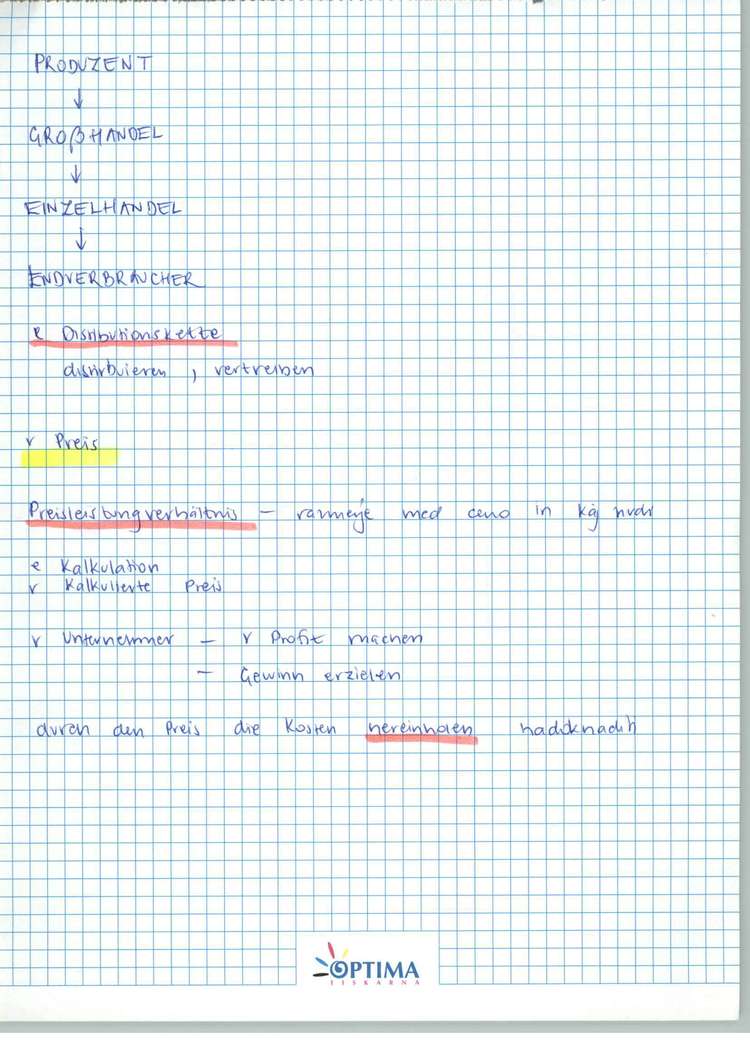 PRODUZENT
↓
GROßHANDEL
↓
EINZELHANDEL
↓
ENDVERBRAUCHER
e Distributionskette
distribuieren , vertreiben
r Preis
Preisleistungverhältnis – razmerje med ceno in kaj nudi
e Kalkulation
r Kalkulierte Preis
r Unternehmer – r Profit machen
– Gewinn erzielen
durch den Preis die Kosten hereinholen nadoknadit
OPTIMA
TISKARNA